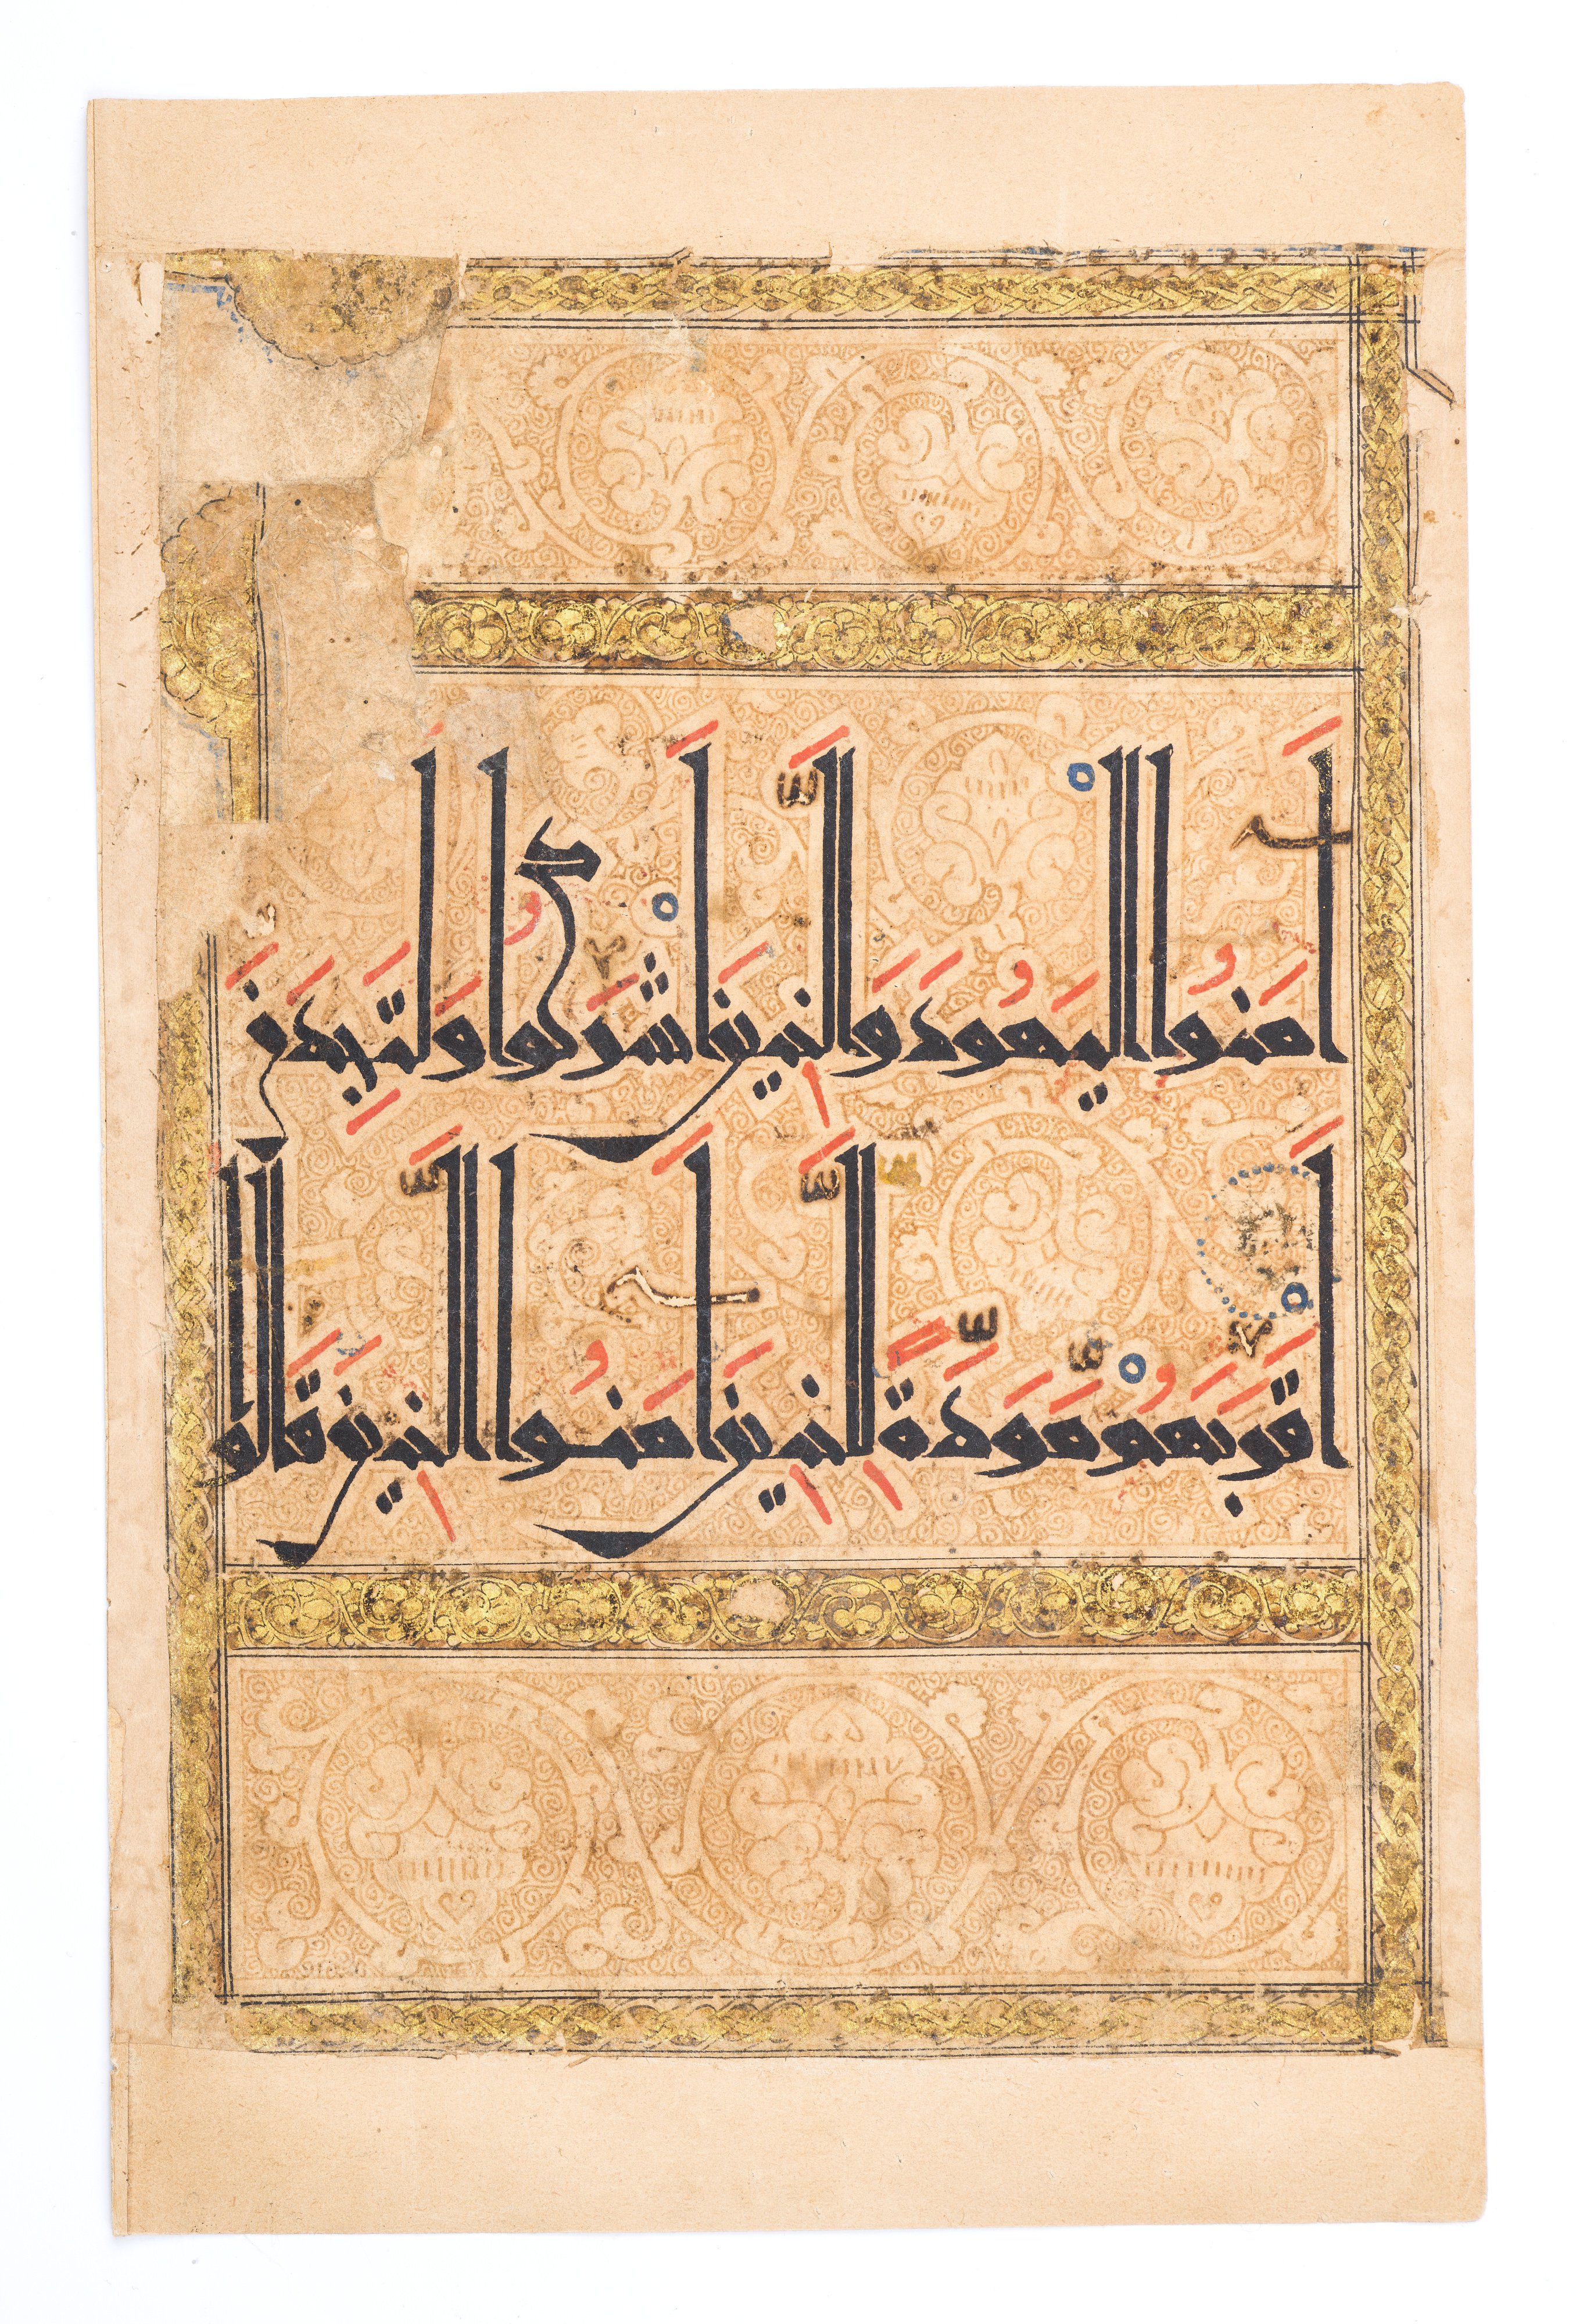 اٰمَنُوا الْيَهُودَ وَالَّذِينَ اَشْرَكُوا وَلَتَجِدَنَّ
اَقْرَبَهُمْ مَوَدَّةً لِلَّذِينَ اٰمَنُوا الَّذِينَ قَالُوا